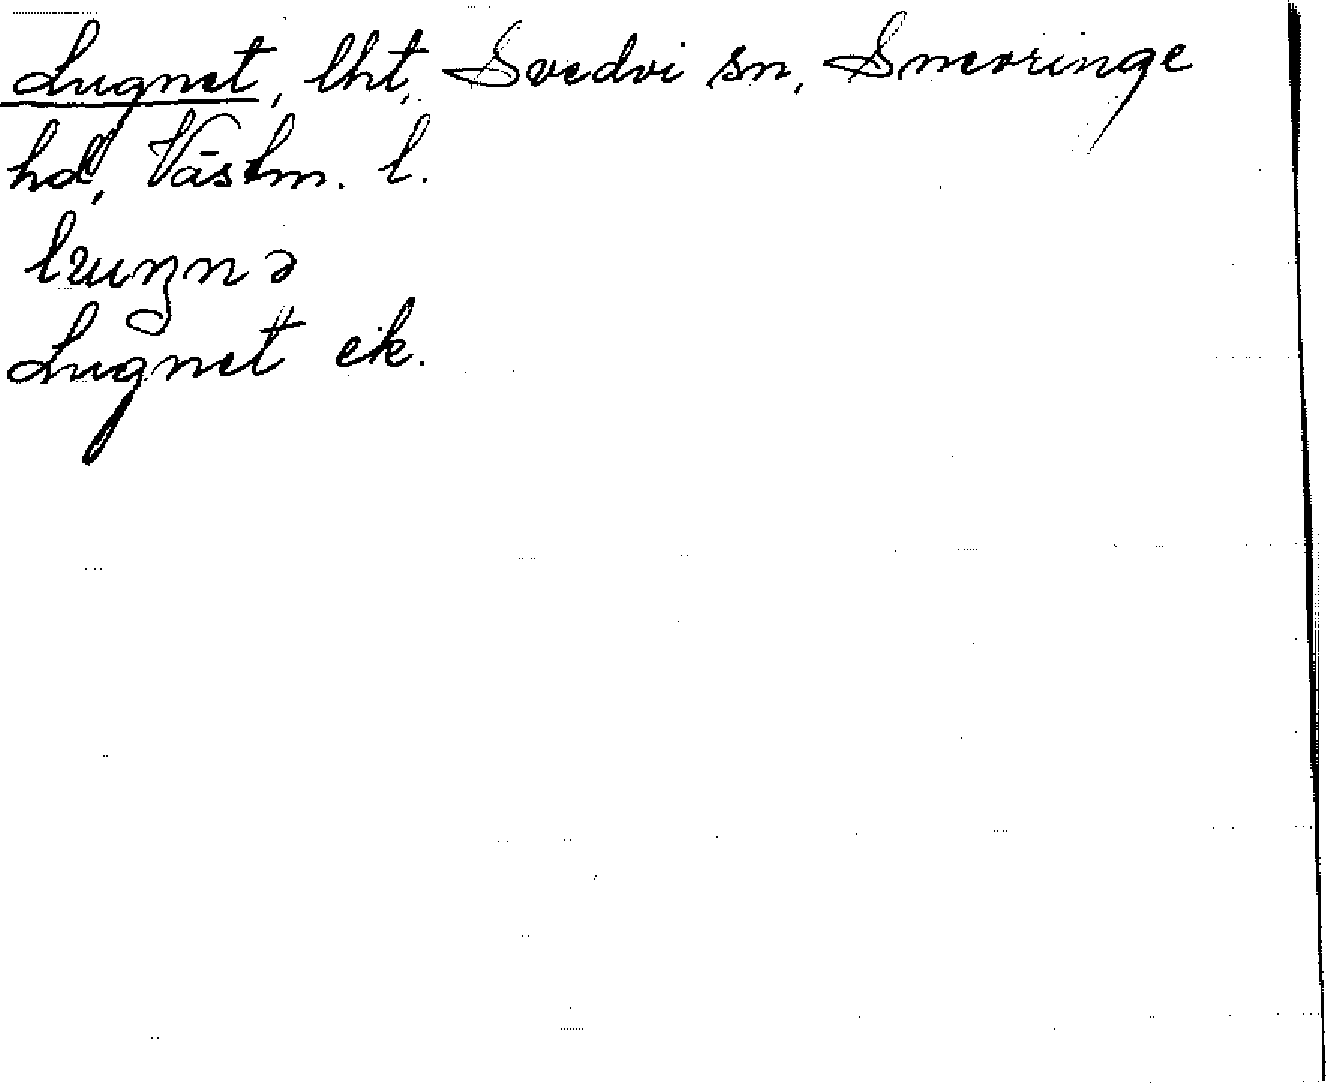 Lugnet, lht, Svedvi sn, Snevringe
hd, Västm. l.
Lugnet ek.